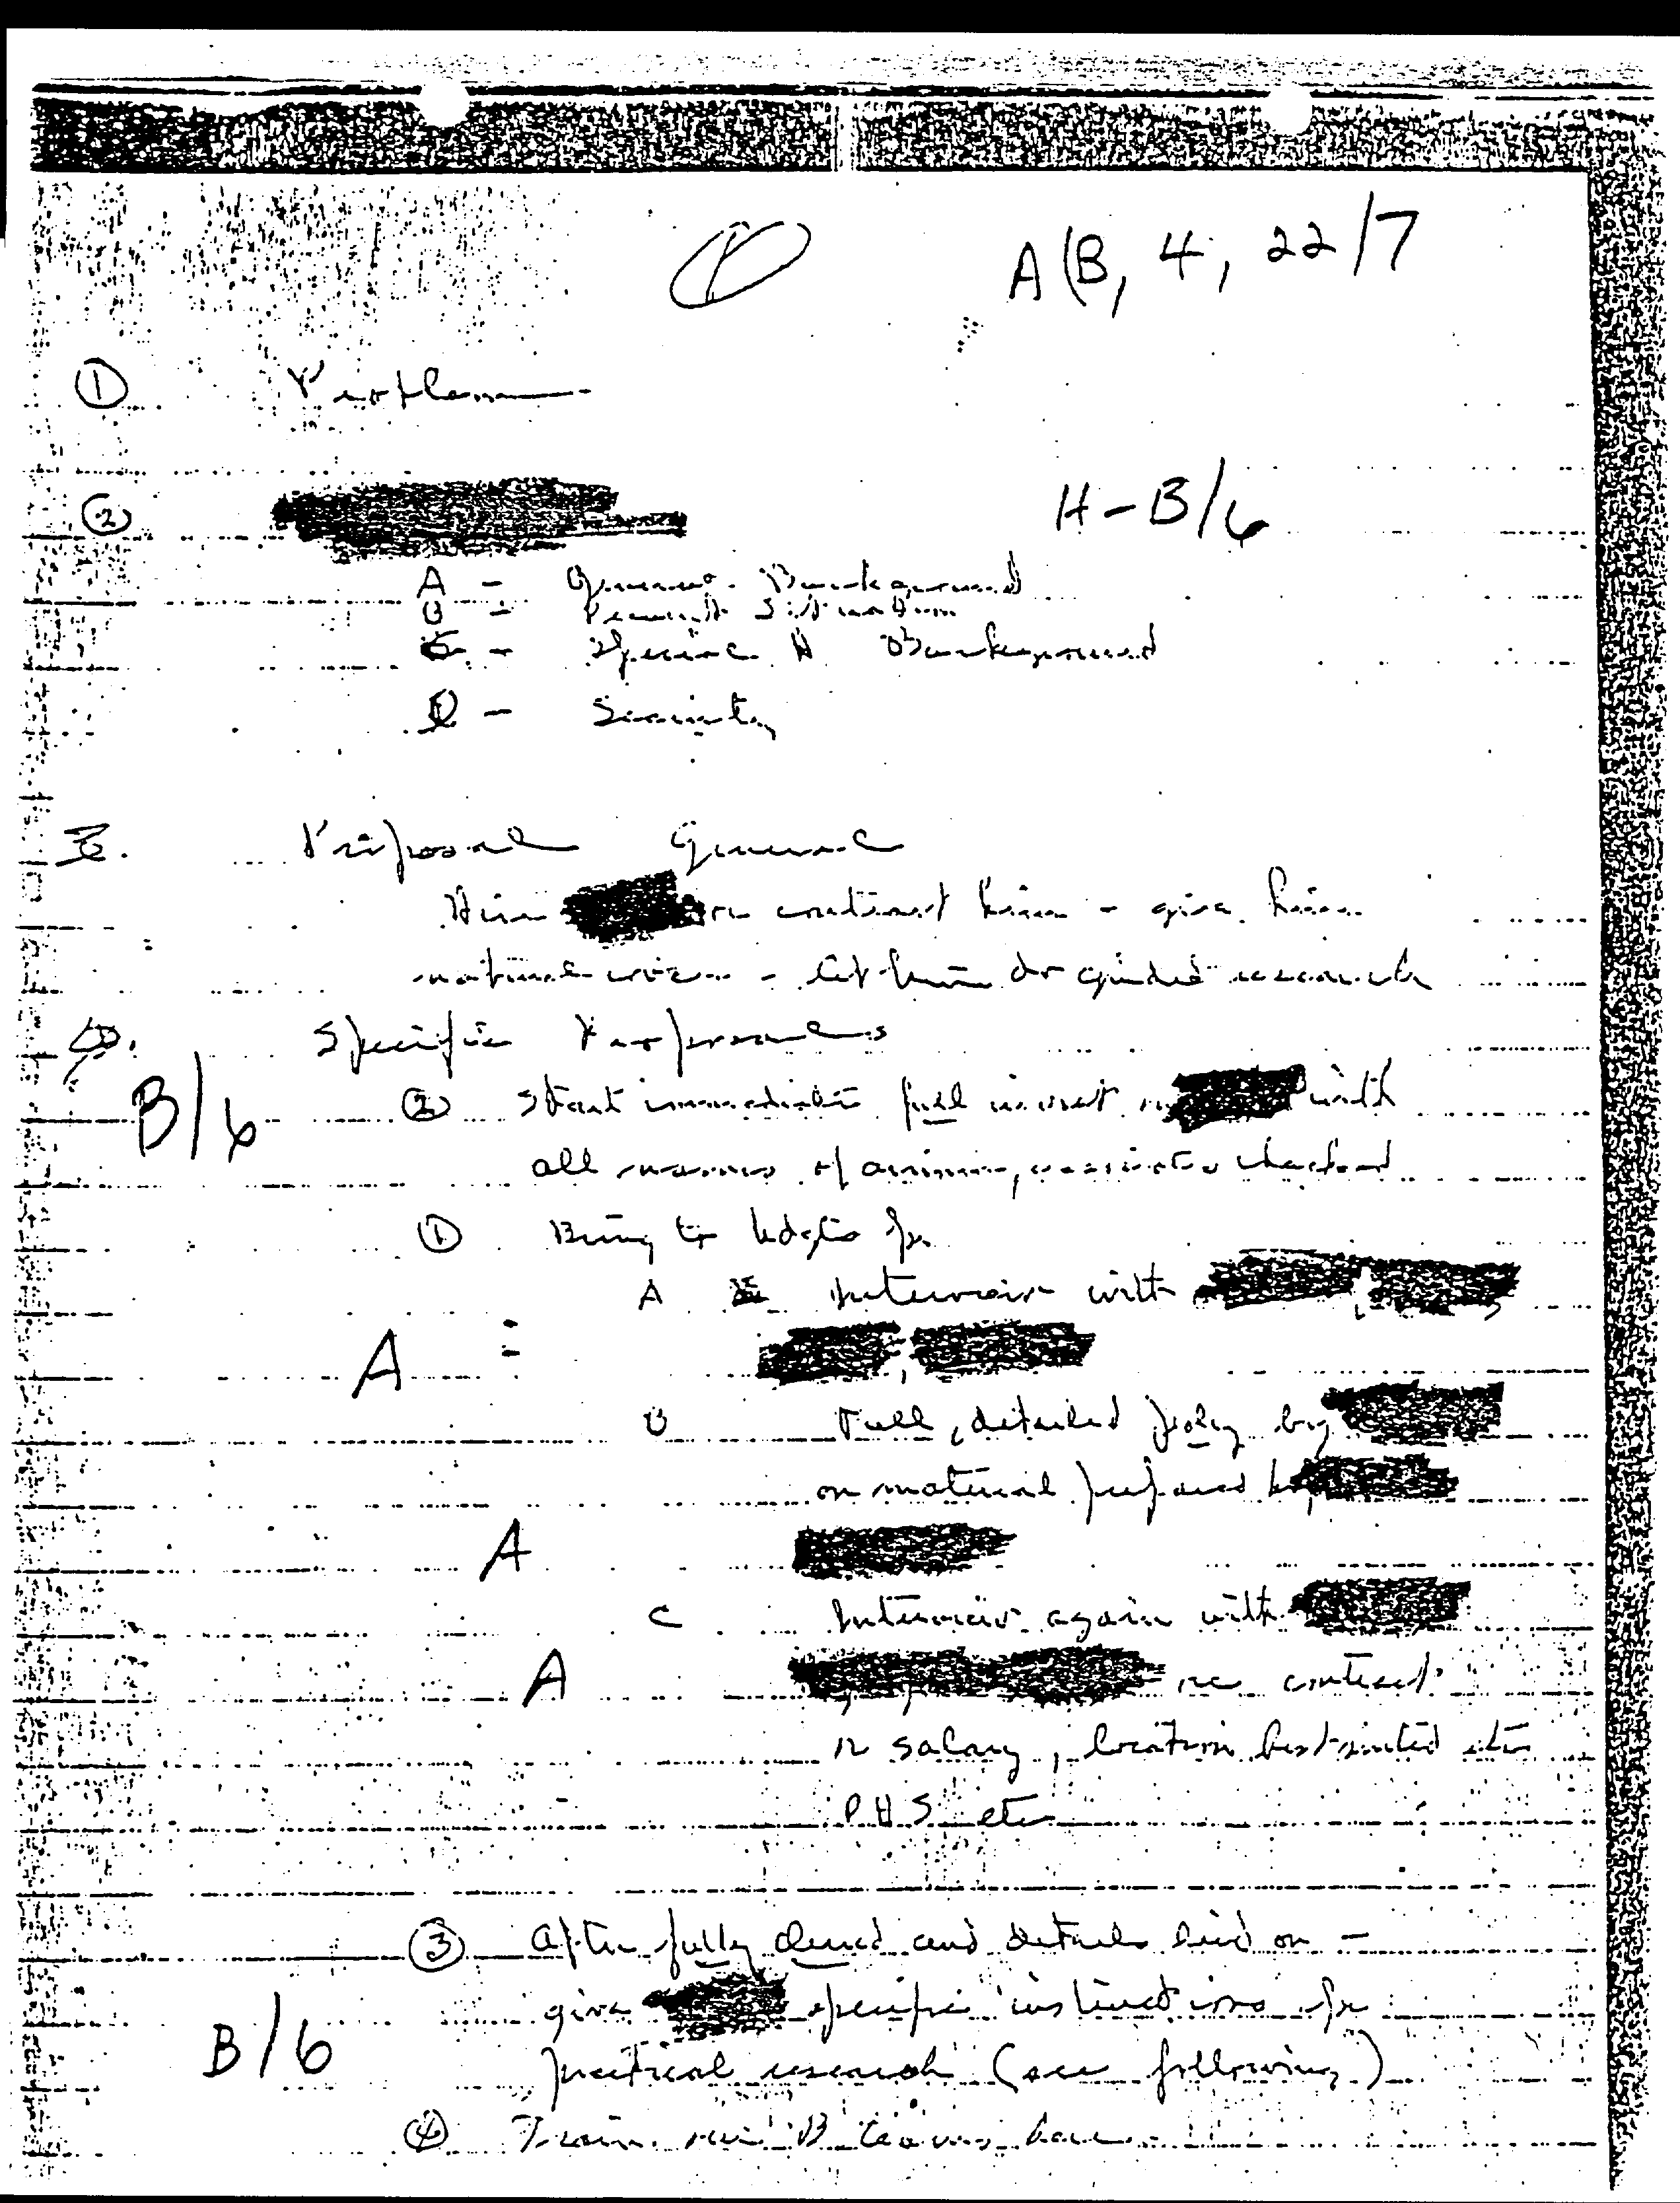 A/B, 4, 22/7
① Problem
② H-B/6
A - General Background
B - Present Situation
C - Special A Background
D - Security
3. Proposal General
Hire or contract him - give him
- let him do guided research
4. Specific Proposals
B/6 ② Start immediate full invest with
all names of associates checked
① Bring to hdqts for
A Interview with
A
B Full, detailed poly by
on material prepared by
A
C Interview again with
A re contract
re salary, location best suited etc
P.H.S. etc
③ After fully cleared and details laid on -
give specific instructions for
B/6 practical research (see following)
④ Train B teams here